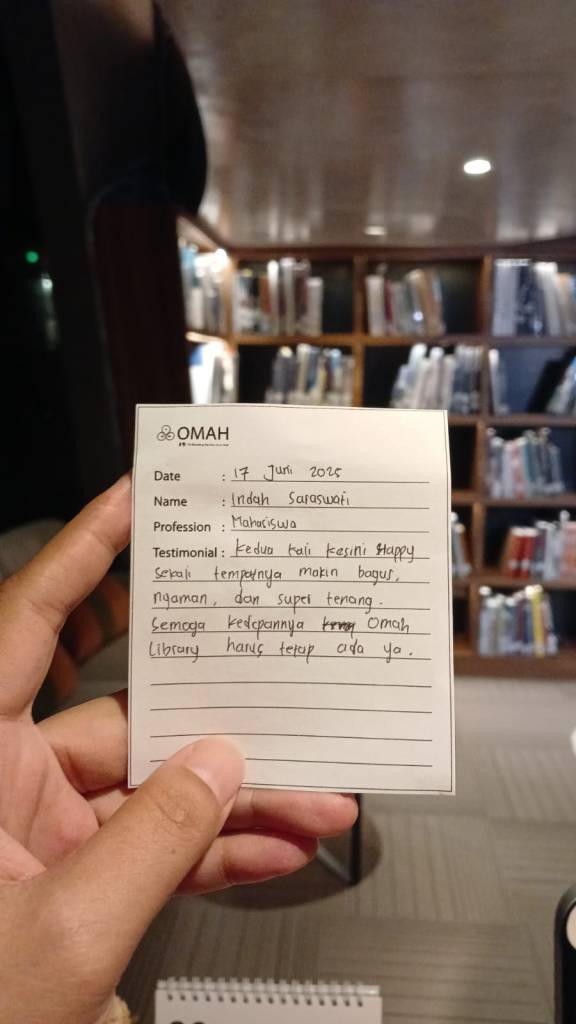 OMAH
Date : 17 Juni 2025
Name : Indah Saraswati
Profession : Mahasiswa
Testimonial : Kedua kali kesini Happy
sekali tempatnya makin bagus,
nyaman, dan super tenang.
Semoga kedepannya Omah
Library harus tetap ada ya.